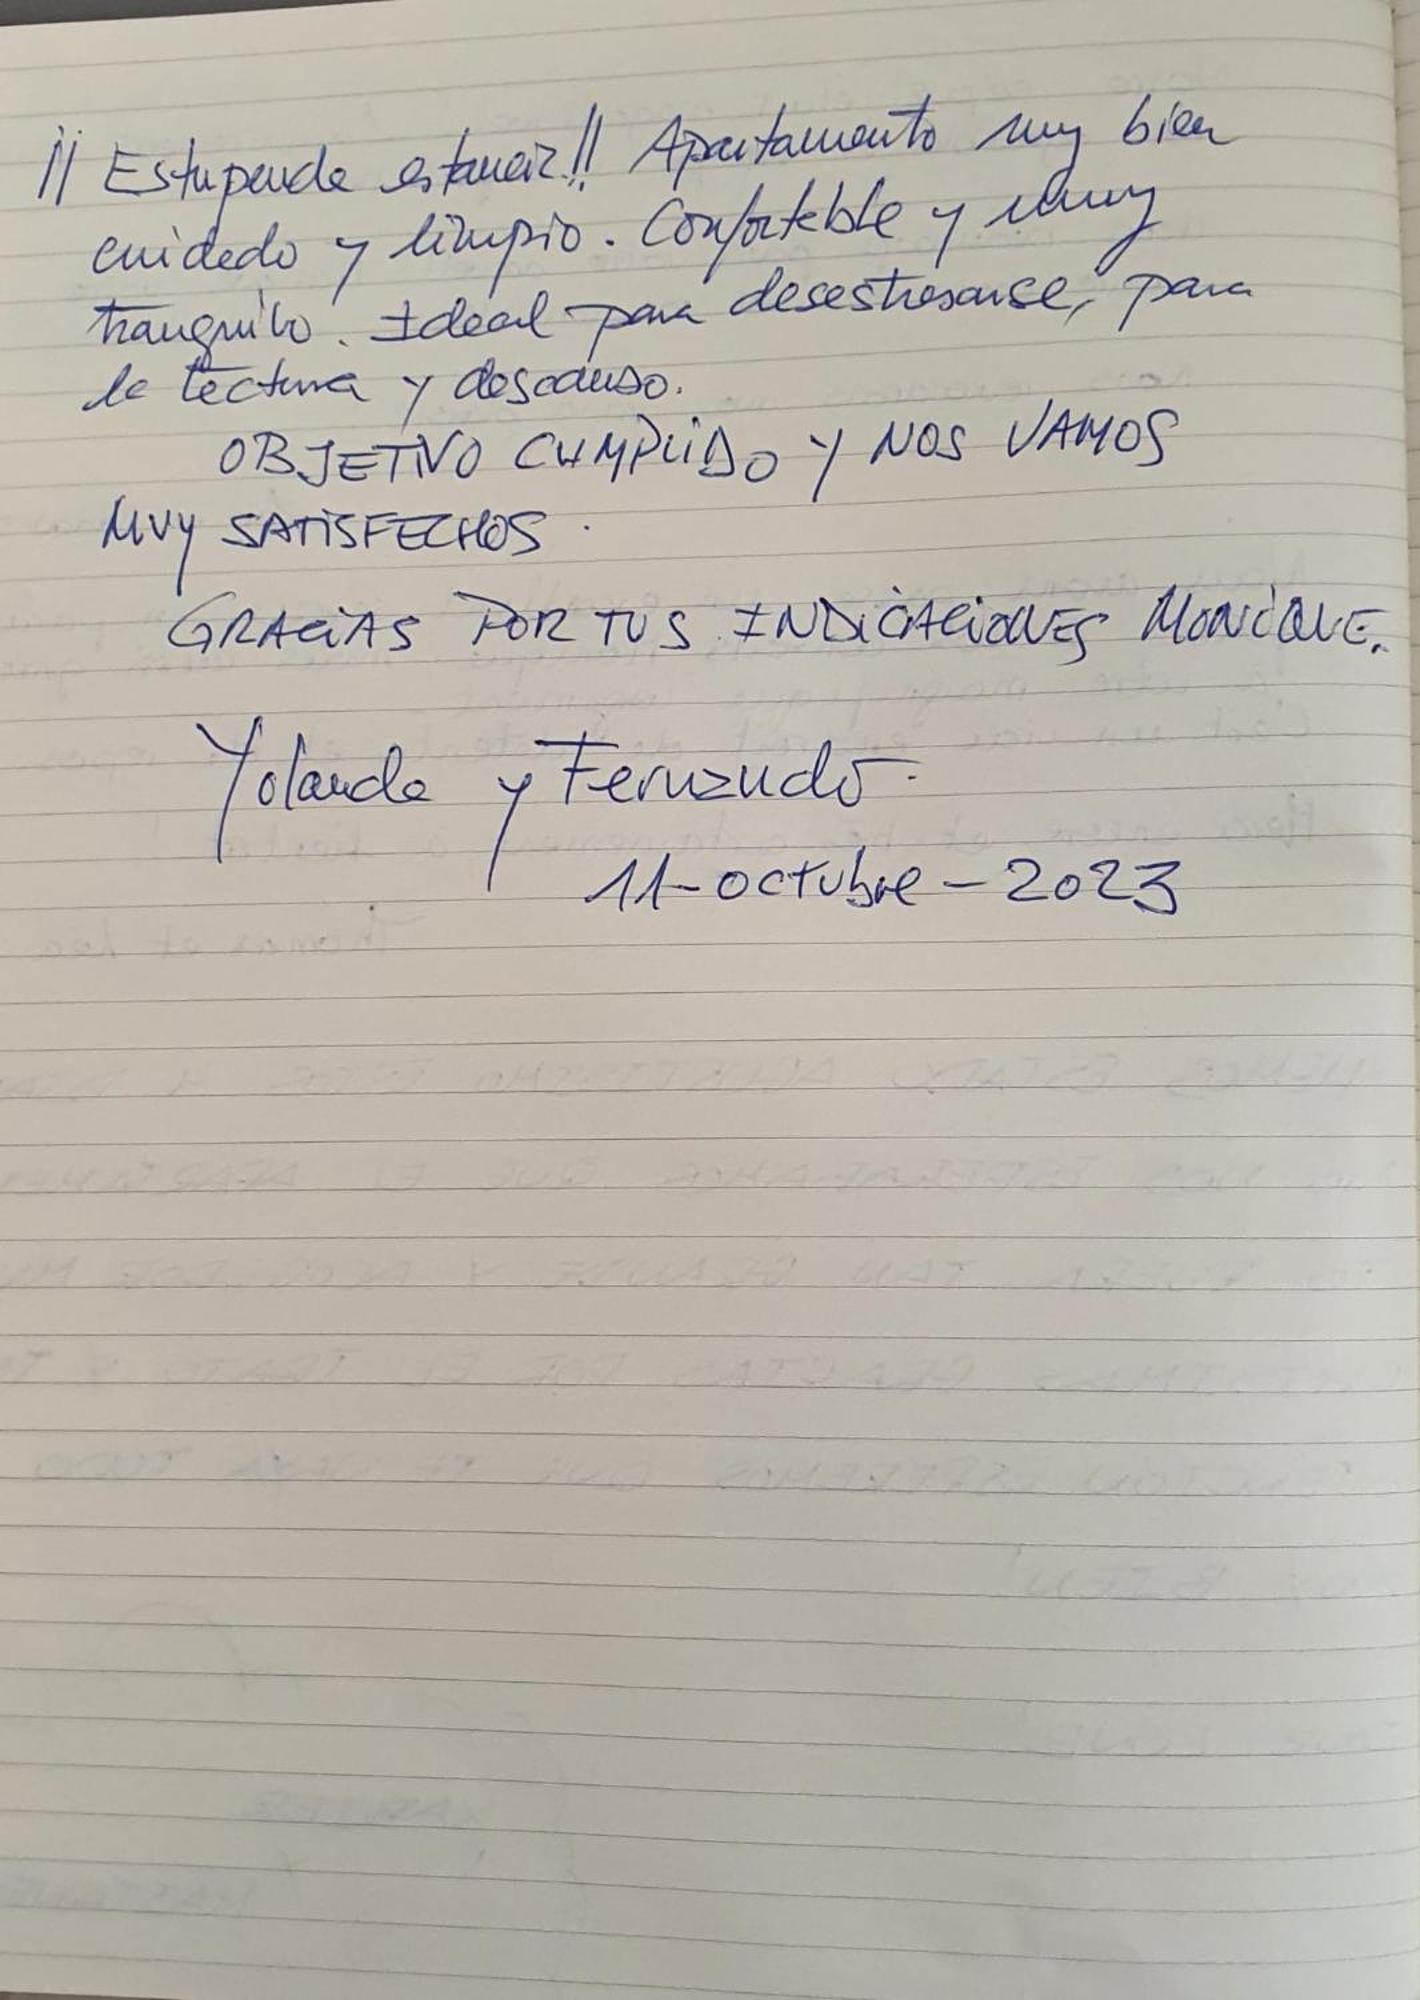 ¡¡Estupenda estancia!! Apartamento muy bien
cuidado y limpio. Confortable y muy
tranquilo. Ideal para desestresarse, para
la lectura y descanso.
OBJETIVO CUMPLIDO Y NOS VAMOS
MUY SATISFECHOS.
GRACIAS POR TUS INDICACIONES MONIQUE.
Yolanda y Fernando.
11-octubre-2023